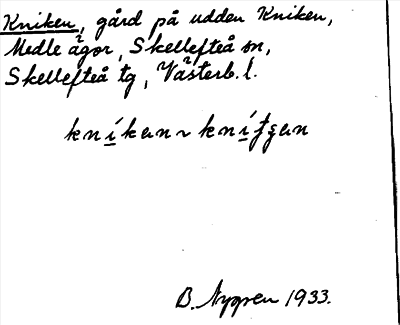 Kniken, gård på udden Kniken,
Medle ägor, Skellefteå sn,
Skellefteå tg, Västerb. l.
B. Nygren 1933.